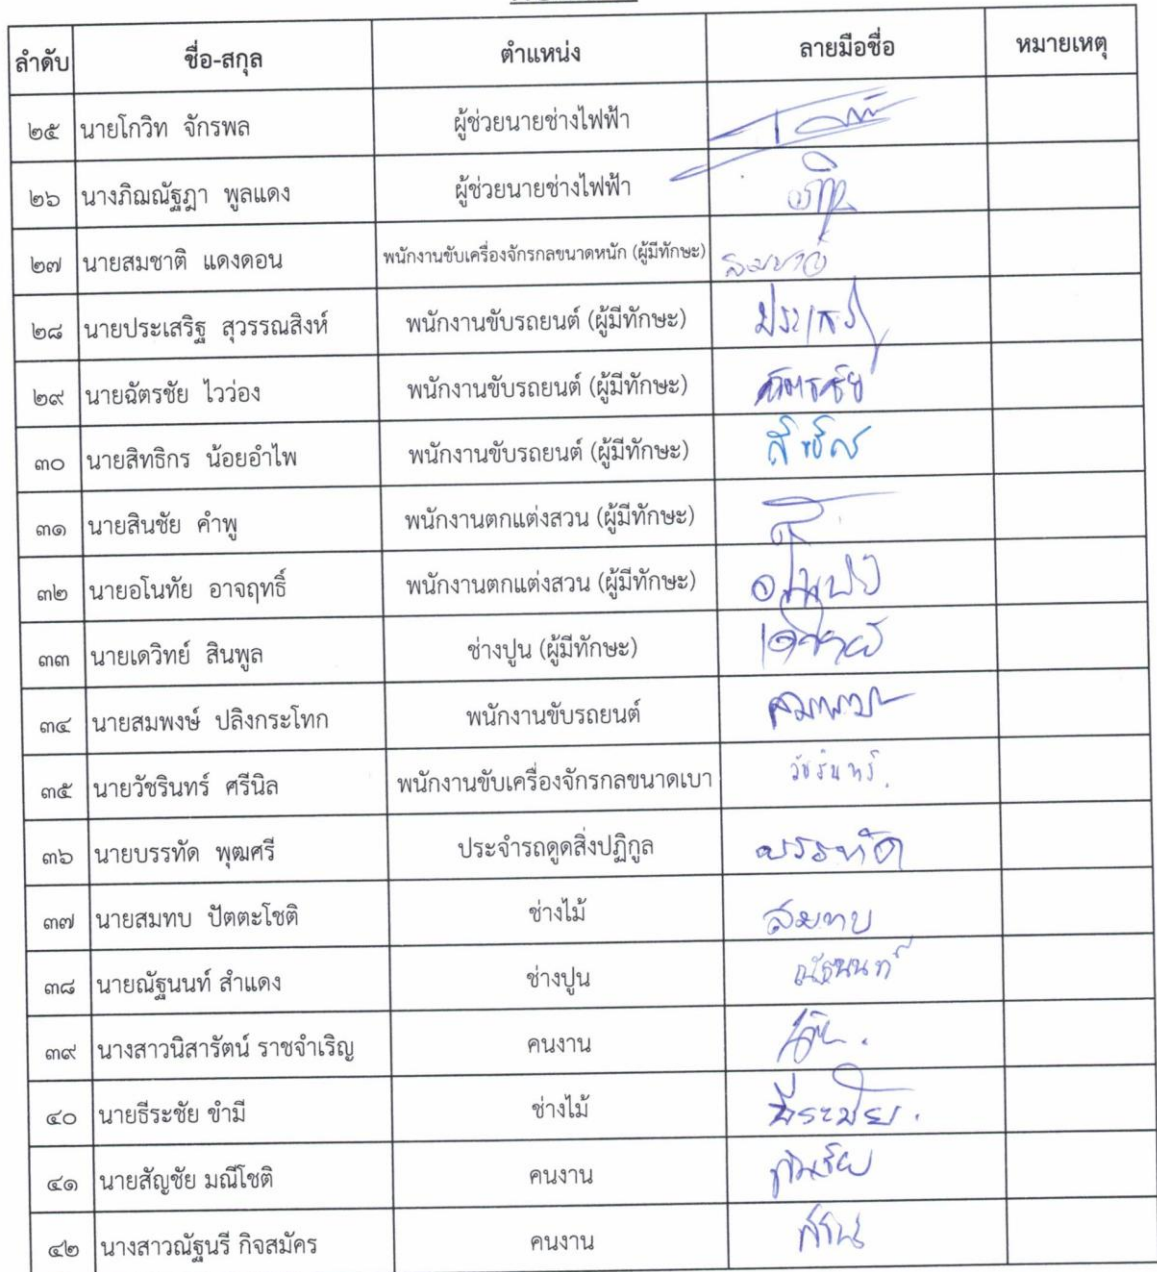 ลำดับ ชื่อ-สกุล ตำแหน่ง ลายมือชื่อ หมายเหตุ
๒๕ นายโกวิท จักรพล ผู้ช่วยนายช่างไฟฟ้า
๒๖ นางภิฌณัฐฎา พูลแดง ผู้ช่วยนายช่างไฟฟ้า
๒๗ นายสมชาติ แดงดอน พนักงานขับเครื่องจักรกลขนาดหนัก (ผู้มีทักษะ) สมชาติ
๒๘ นายประเสริฐ สุวรรณสิงห์ พนักงานขับรถยนต์ (ผู้มีทักษะ)
๒๙ นายฉัตรชัย ไวว่อง พนักงานขับรถยนต์ (ผู้มีทักษะ) ฉัตรชัย
๓๐ นายสิทธิกร น้อยอำไพ พนักงานขับรถยนต์ (ผู้มีทักษะ)
๓๑ นายสินชัย คำพู พนักงานตกแต่งสวน (ผู้มีทักษะ)
๓๒ นายอโนทัย อาจฤทธิ์ พนักงานตกแต่งสวน (ผู้มีทักษะ)
๓๓ นายเดวิทย์ สินพูล ช่างปูน (ผู้มีทักษะ)
๓๔ นายสมพงษ์ ปลิงกระโทก พนักงานขับรถยนต์
๓๕ นายวัชรินทร์ ศรีนิล พนักงานขับเครื่องจักรกลขนาดเบา วัชรินทร์
๓๖ นายบรรทัด พุฒศรี ประจำรถดูดสิ่งปฏิกูล บรรทัด
๓๗ นายสมทบ ปัตตะโชติ ช่างไม้ สมทบ
๓๘ นายณัฐนนท์ สำแดง ช่างปูน ณัฐนนท์
๓๙ นางสาวนิสารัตน์ ราชจำเริญ คนงาน
๔๐ นายธีระชัย ขำมี ช่างไม้ ธีระชัย
๔๑ นายสัญชัย มณีโชติ คนงาน
๔๒ นางสาวณัฐนรี กิจสมัคร คนงาน